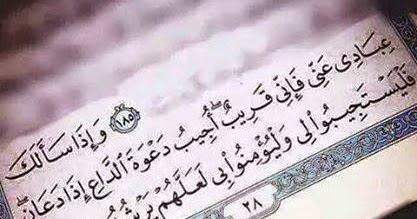 ﴿١٨٥﴾ وَإِذَا سَأَلَكَ
عِبَادِى عَنِّى فَإِنِّى قَرِيبٌ أُجِيبُ دَعْوَةَ ٱلدَّاعِ إِذَا دَعَانِ
فَلْيَسْتَجِيبُوا۟ لِى وَلْيُؤْمِنُوا۟ بِى لَعَلَّهُمْ يَرْشُدُ
٢٨